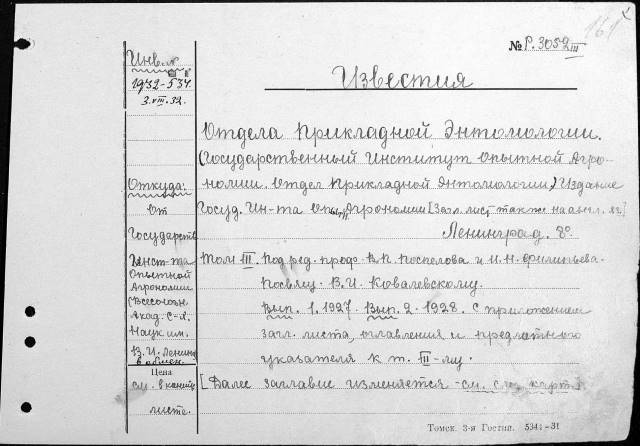 161
№ Р. 3052 III
Инв. №
1932-534
3.VIII.32.
Известия
Отдела Прикладной Энтомологии.
(Государственный Институт Опытной Агро-
номии. Отдел Прикладной Энтомологии) Издание
Госуд. Ин-та Опытн. Агрономии [Загл. лист также на англ. яз.]
Ленинград. 8º.
Том III. Под ред. проф. В.П. Поспелова и И.Н. Филипьева.
Посвящ. В.И. Ковалевскому.
Вып. 1. 1927. Вып. 2. 1928. с приложением
загл. листа, оглавления и предметного
указателя к т. III-му.
[Далее заглавие изменяется - см. след. карт.
Откуда:
От
Государств
Инст-та
Опытной
Агрономии
(Всесоюзн.
Акад. С-Х.
Наук им.
В. И. Ленина
в обмен.
Цена
см. в конце
листе.
Томск. 3-я Гостип. 5341-31